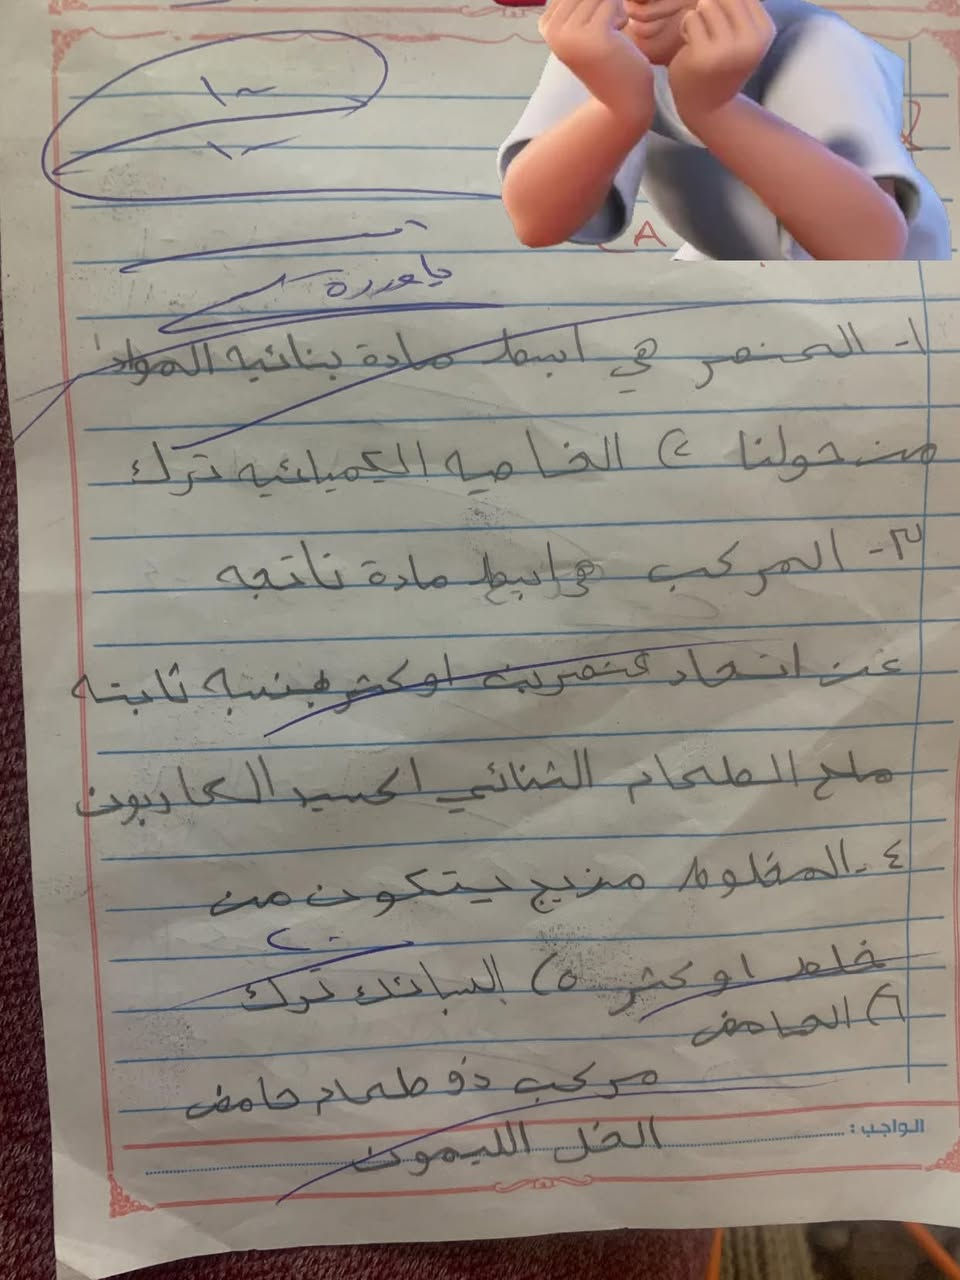 ١٠٠
١٠٠
A
١- العنصر هي ابسط مادة بنائيه المواد
من حولنا ٢) الخاصيه الكميائيه ترك
٣- المركب هي ابسط مادة ناتجه
عن اتحاد عنصرين او كثر بنسبه ثابته
ملح الطعام الثنائي اكسيد الكاربون
٤- المخلوط مزيج يتكون من
خلط او كثر ٥) السائد ترك
٦) الحامض
مركب ذو طعام حامض
الخل الليمون
الواجب: